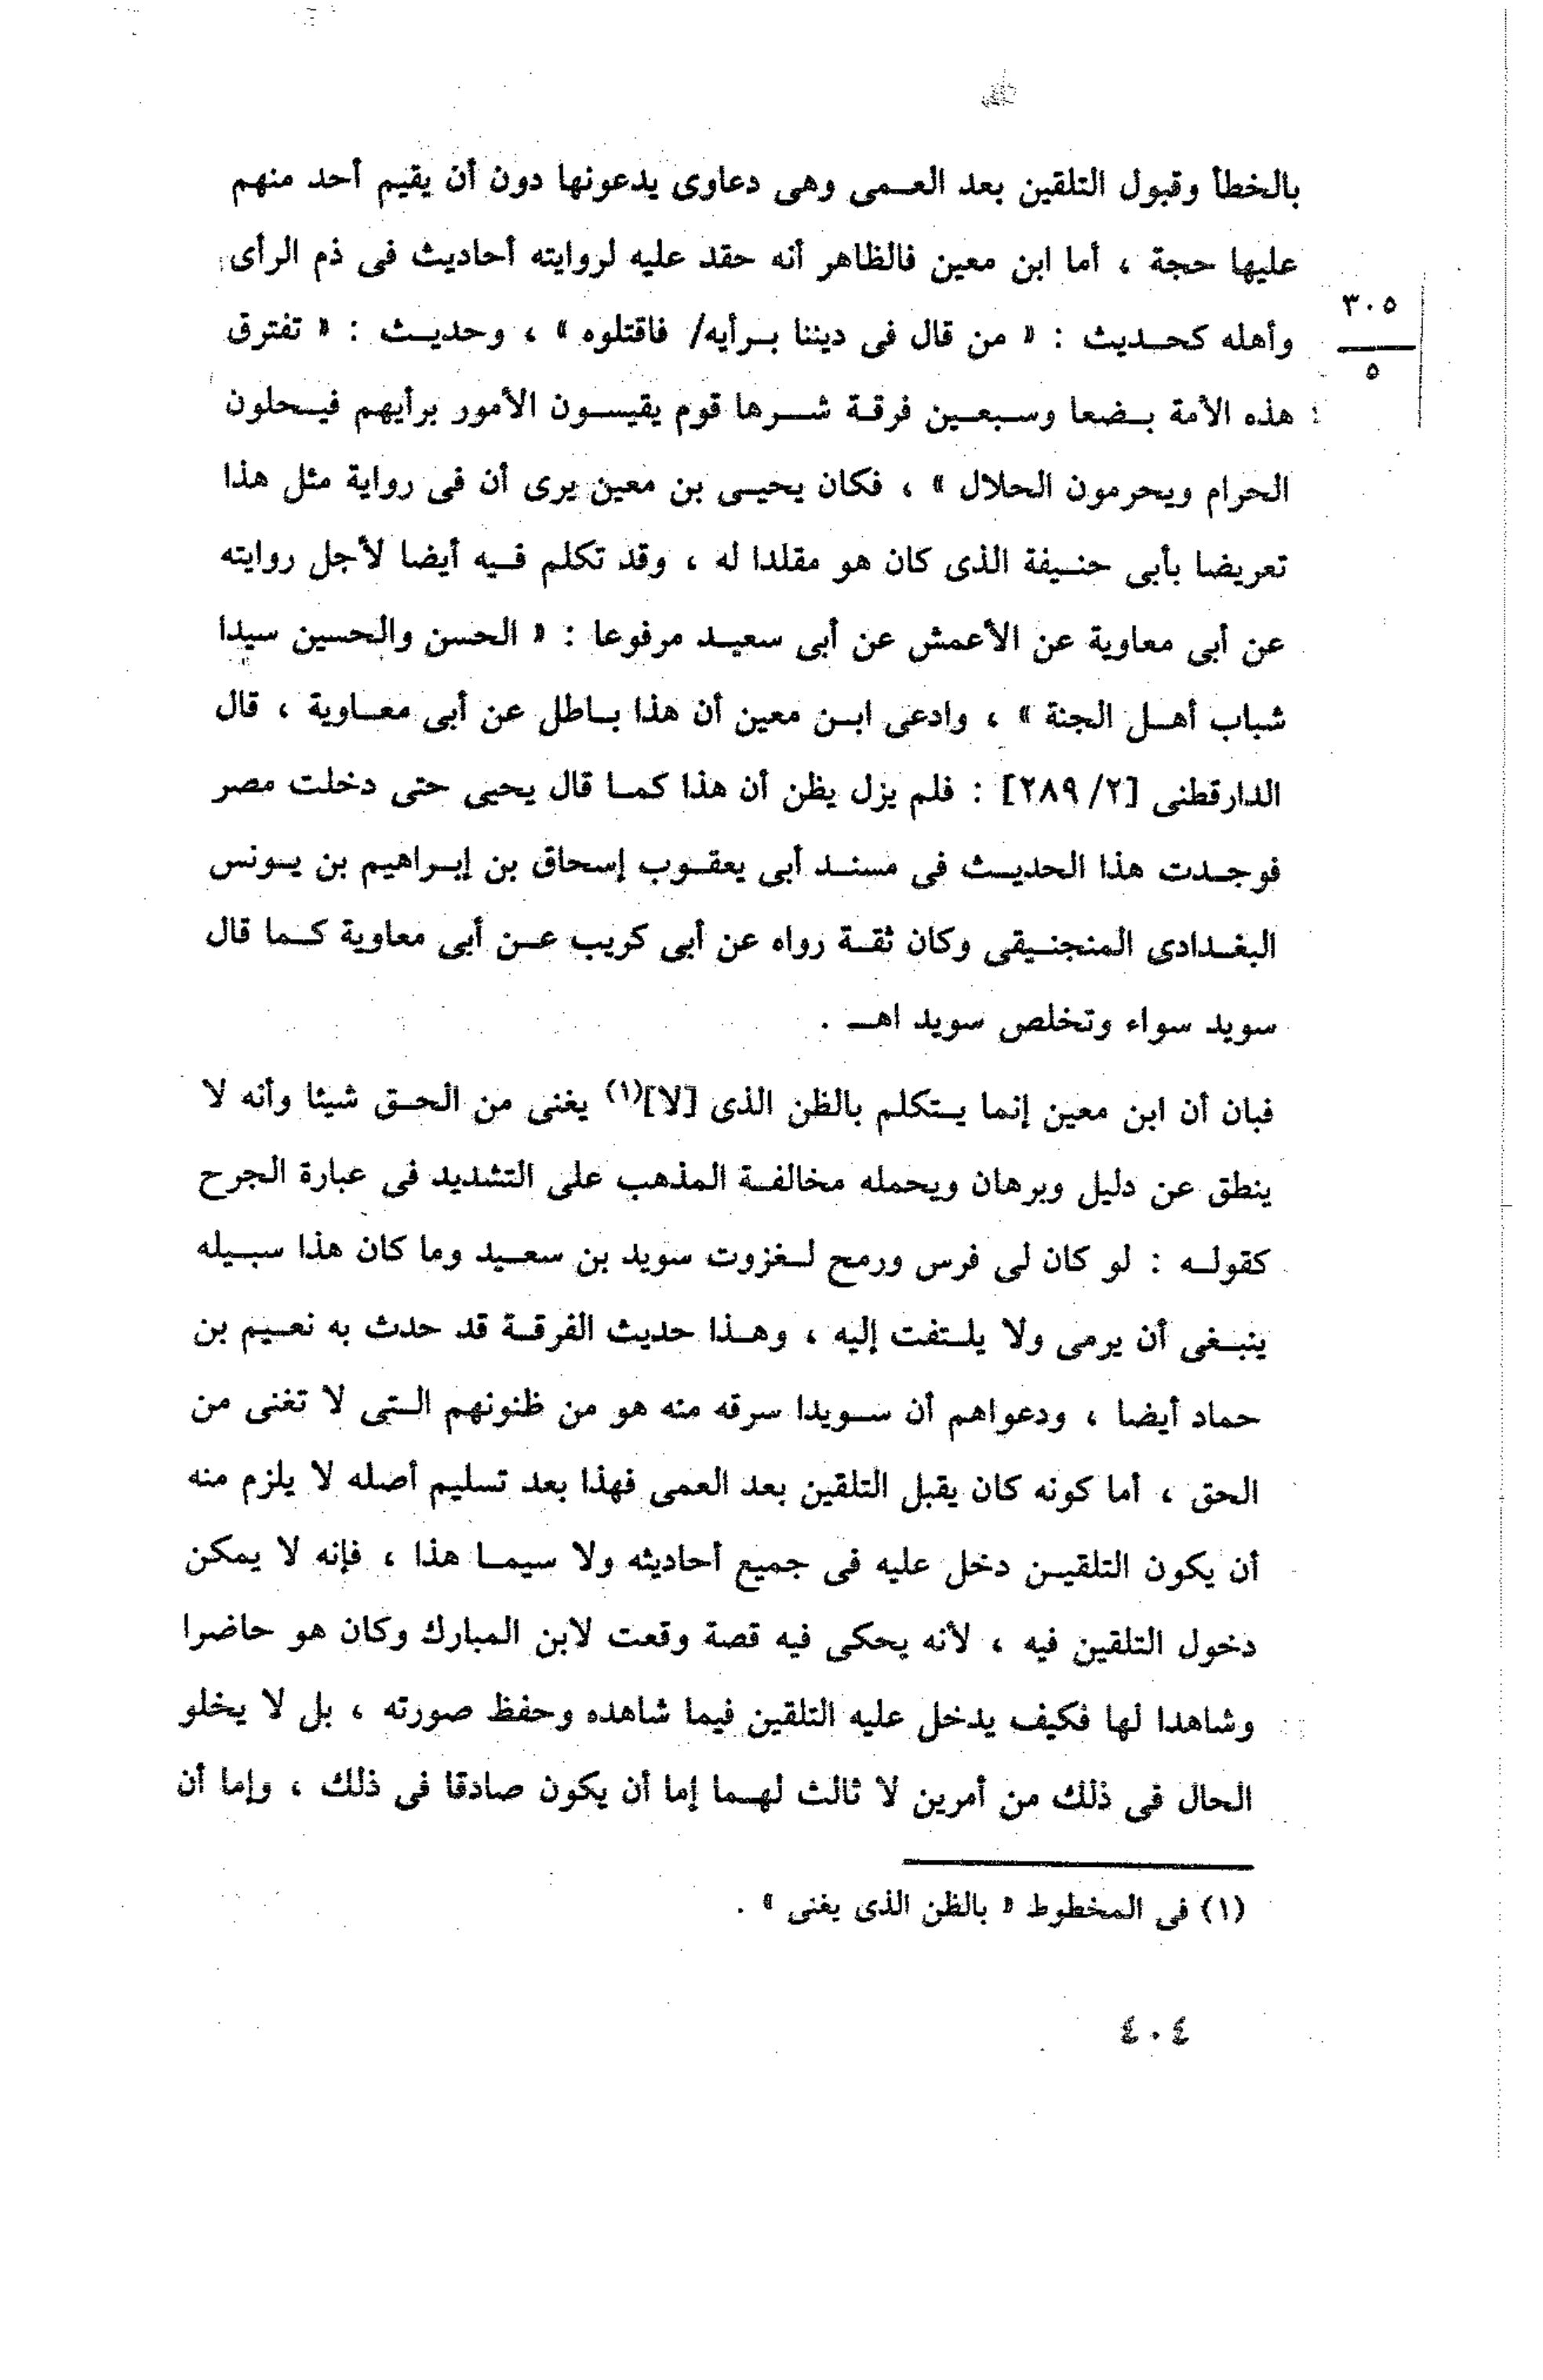 بالخطأ وقبول التلقين بعد العمى وهى دعاوى يدعونها دون أن يقيم أحد منهم
عليها حجة ، أما ابن معين فالظاهر أنه حقد عليه لروايته أحاديث فى ذم الرأى
٣٠٥
٥
وأهله كحديث : « من قال فى ديننا برأيه/ فاقتلوه » ، وحديث : « تفترق
هذه الأمة بضعا وسبعين فرقة شرها قوم يقيسون الأمور برأيهم فيحلون
الحرام ويحرمون الحلال » ، فكان يحيى بن معين يرى أن فى رواية مثل هذا
تعريضا بأبى حنيفة الذى كان هو مقلدا له ، وقد تكلم فيه أيضا لأجل روايته
عن أبى معاوية عن الأعمش عن أبى سعيد مرفوعا : « الحسن والحسين سيدا
شباب أهل الجنة » ، وادعى ابن معين أن هذا باطل عن أبى معاوية ، قال
الدارقطنى [٢/ ٢٨٩] : فلم يزل يظن أن هذا كما قال يحيى حتى دخلت مصر
فوجدت هذا الحديث فى مسند أبى يعقوب إسحاق بن إبراهيم بن يونس
البغدادى المنجنيقى وكان ثقة رواه عن أبى كريب عن أبى معاوية كما قال
سويد سواء وتخلص سويد اهـ .
فبان أن ابن معين إنما يتكلم بالظن الذى [لا](١) يغنى من الحق شيئا وأنه لا
ينطق عن دليل وبرهان ويحمله مخالفة المذهب على التشديد فى عبارة الجرح
كقوله : لو كان لى فرس ورمح لغزوت سويد بن سعيد وما كان هذا سبيله
ينبغى أن يرمى ولا يلتفت إليه ، وهذا حديث الفرقة قد حدث به نعيم بن
حماد أيضا ، ودعواهم أن سويدا سرقه منه هو من ظنونهم التى لا تغنى من
الحق ، أما كونه كان يقبل التلقين بعد العمى فهذا بعد تسليم أصله لا يلزم منه
أن يكون التلقين دخل عليه فى جميع أحاديثه ولا سيما هذا ، فإنه لا يمكن
دخول التلقين فيه ، لأنه يحكى فيه قصة وقعت لابن المبارك وكان هو حاضرا
وشاهدا لها فكيف يدخل عليه التلقين فيما شاهده وحفظ صورته ، بل لا يخلو
الحال فى ذلك من أمرين لا ثالث لهما إما أن يكون صادقا فى ذلك ، وإما أن
(١) فى المخطوط « بالظن الذى يغنى » .
٤٠٤